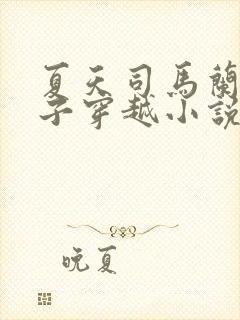 夏天司馬蘭
子穿越小說
晚夏